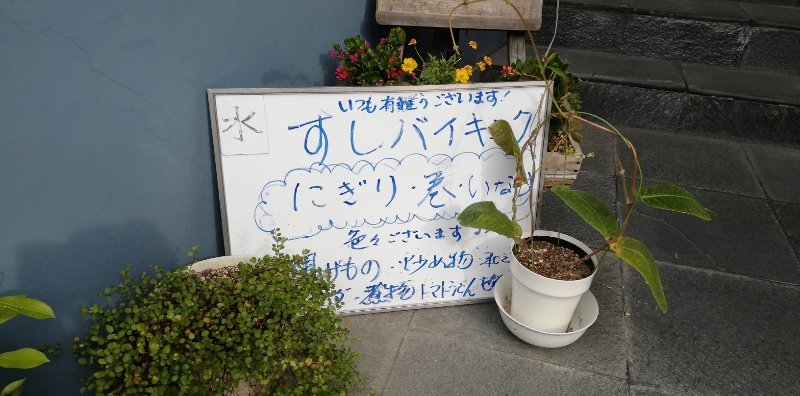 水
いつも有難うございます!
すしバイキング
にぎり・巻・いな
色々ございます
げもの・炒め物
煮物 トマト